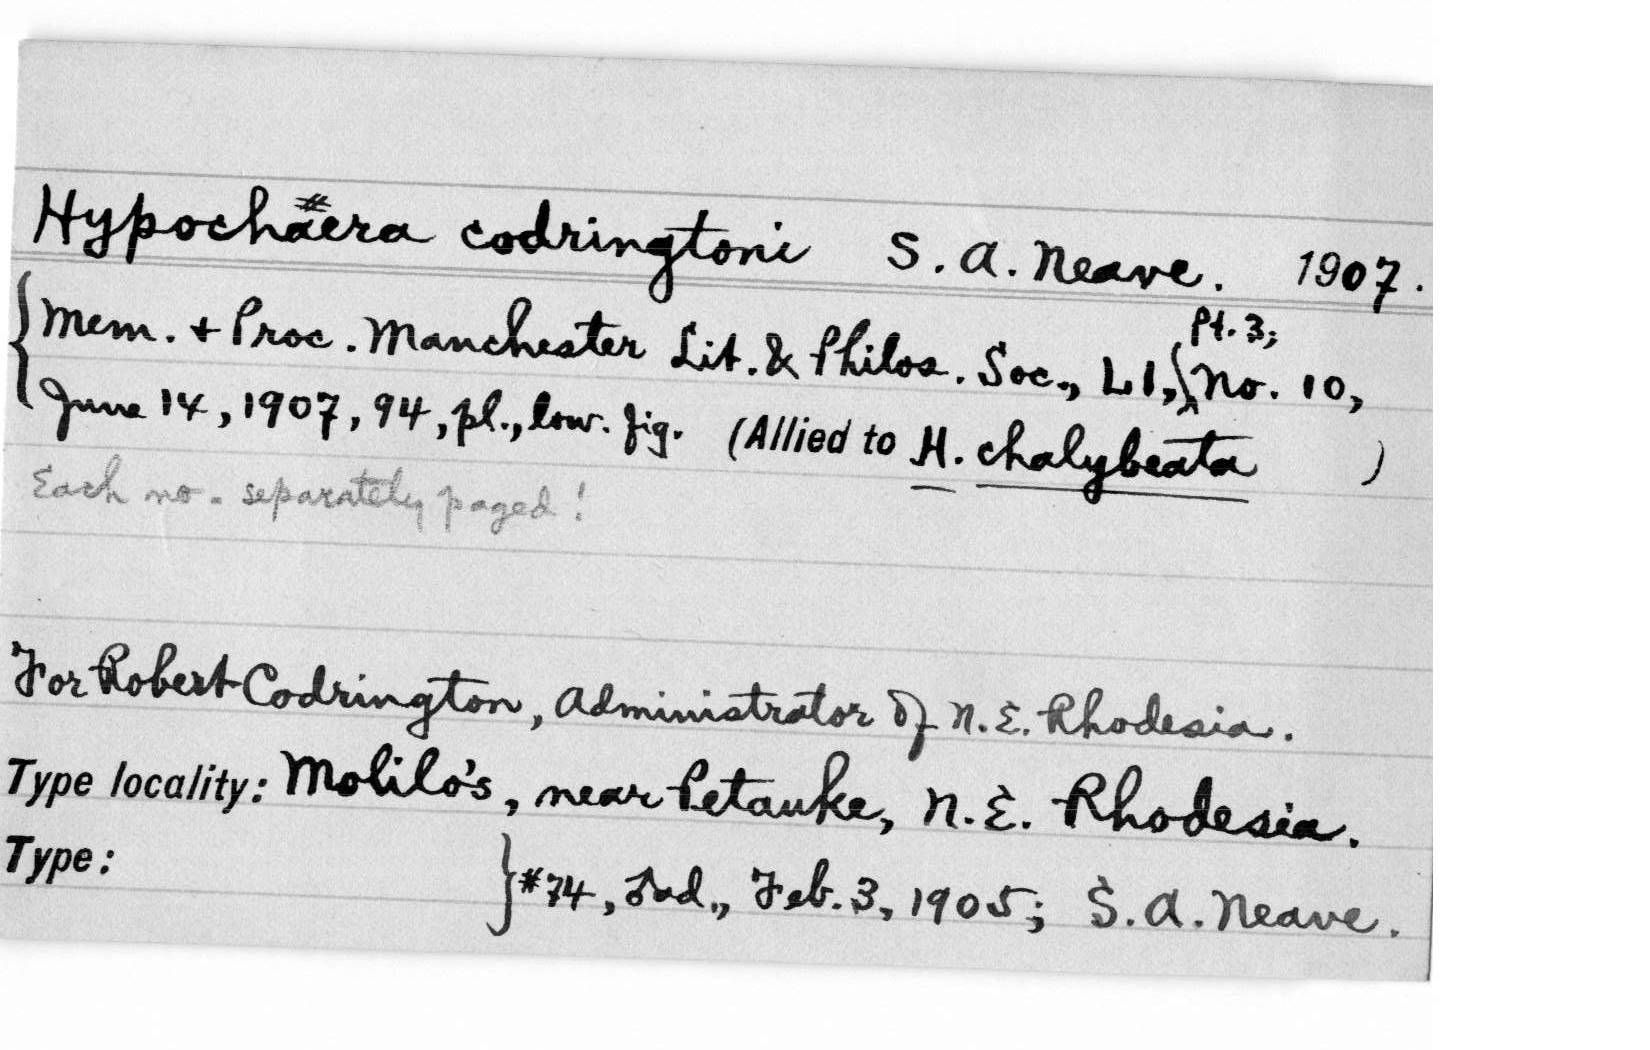 Hypochaera codringtoni S. A. Neave. 1907.
Mem. & Proc. Manchester Lit. & Philos. Soc., LI, Pt. 3; No. 10,
June 14, 1907, 94, pl., low. fig. (Allied to H. chalybeata )
Each no. separately paged!
For Robert Codrington, Administrator of N. E. Rhodesia.
Type locality: Molilo's, near Petauke, N. E. Rhodesia.
Type: } #74, ♂ ad., Feb. 3, 1905; S. A. Neave.